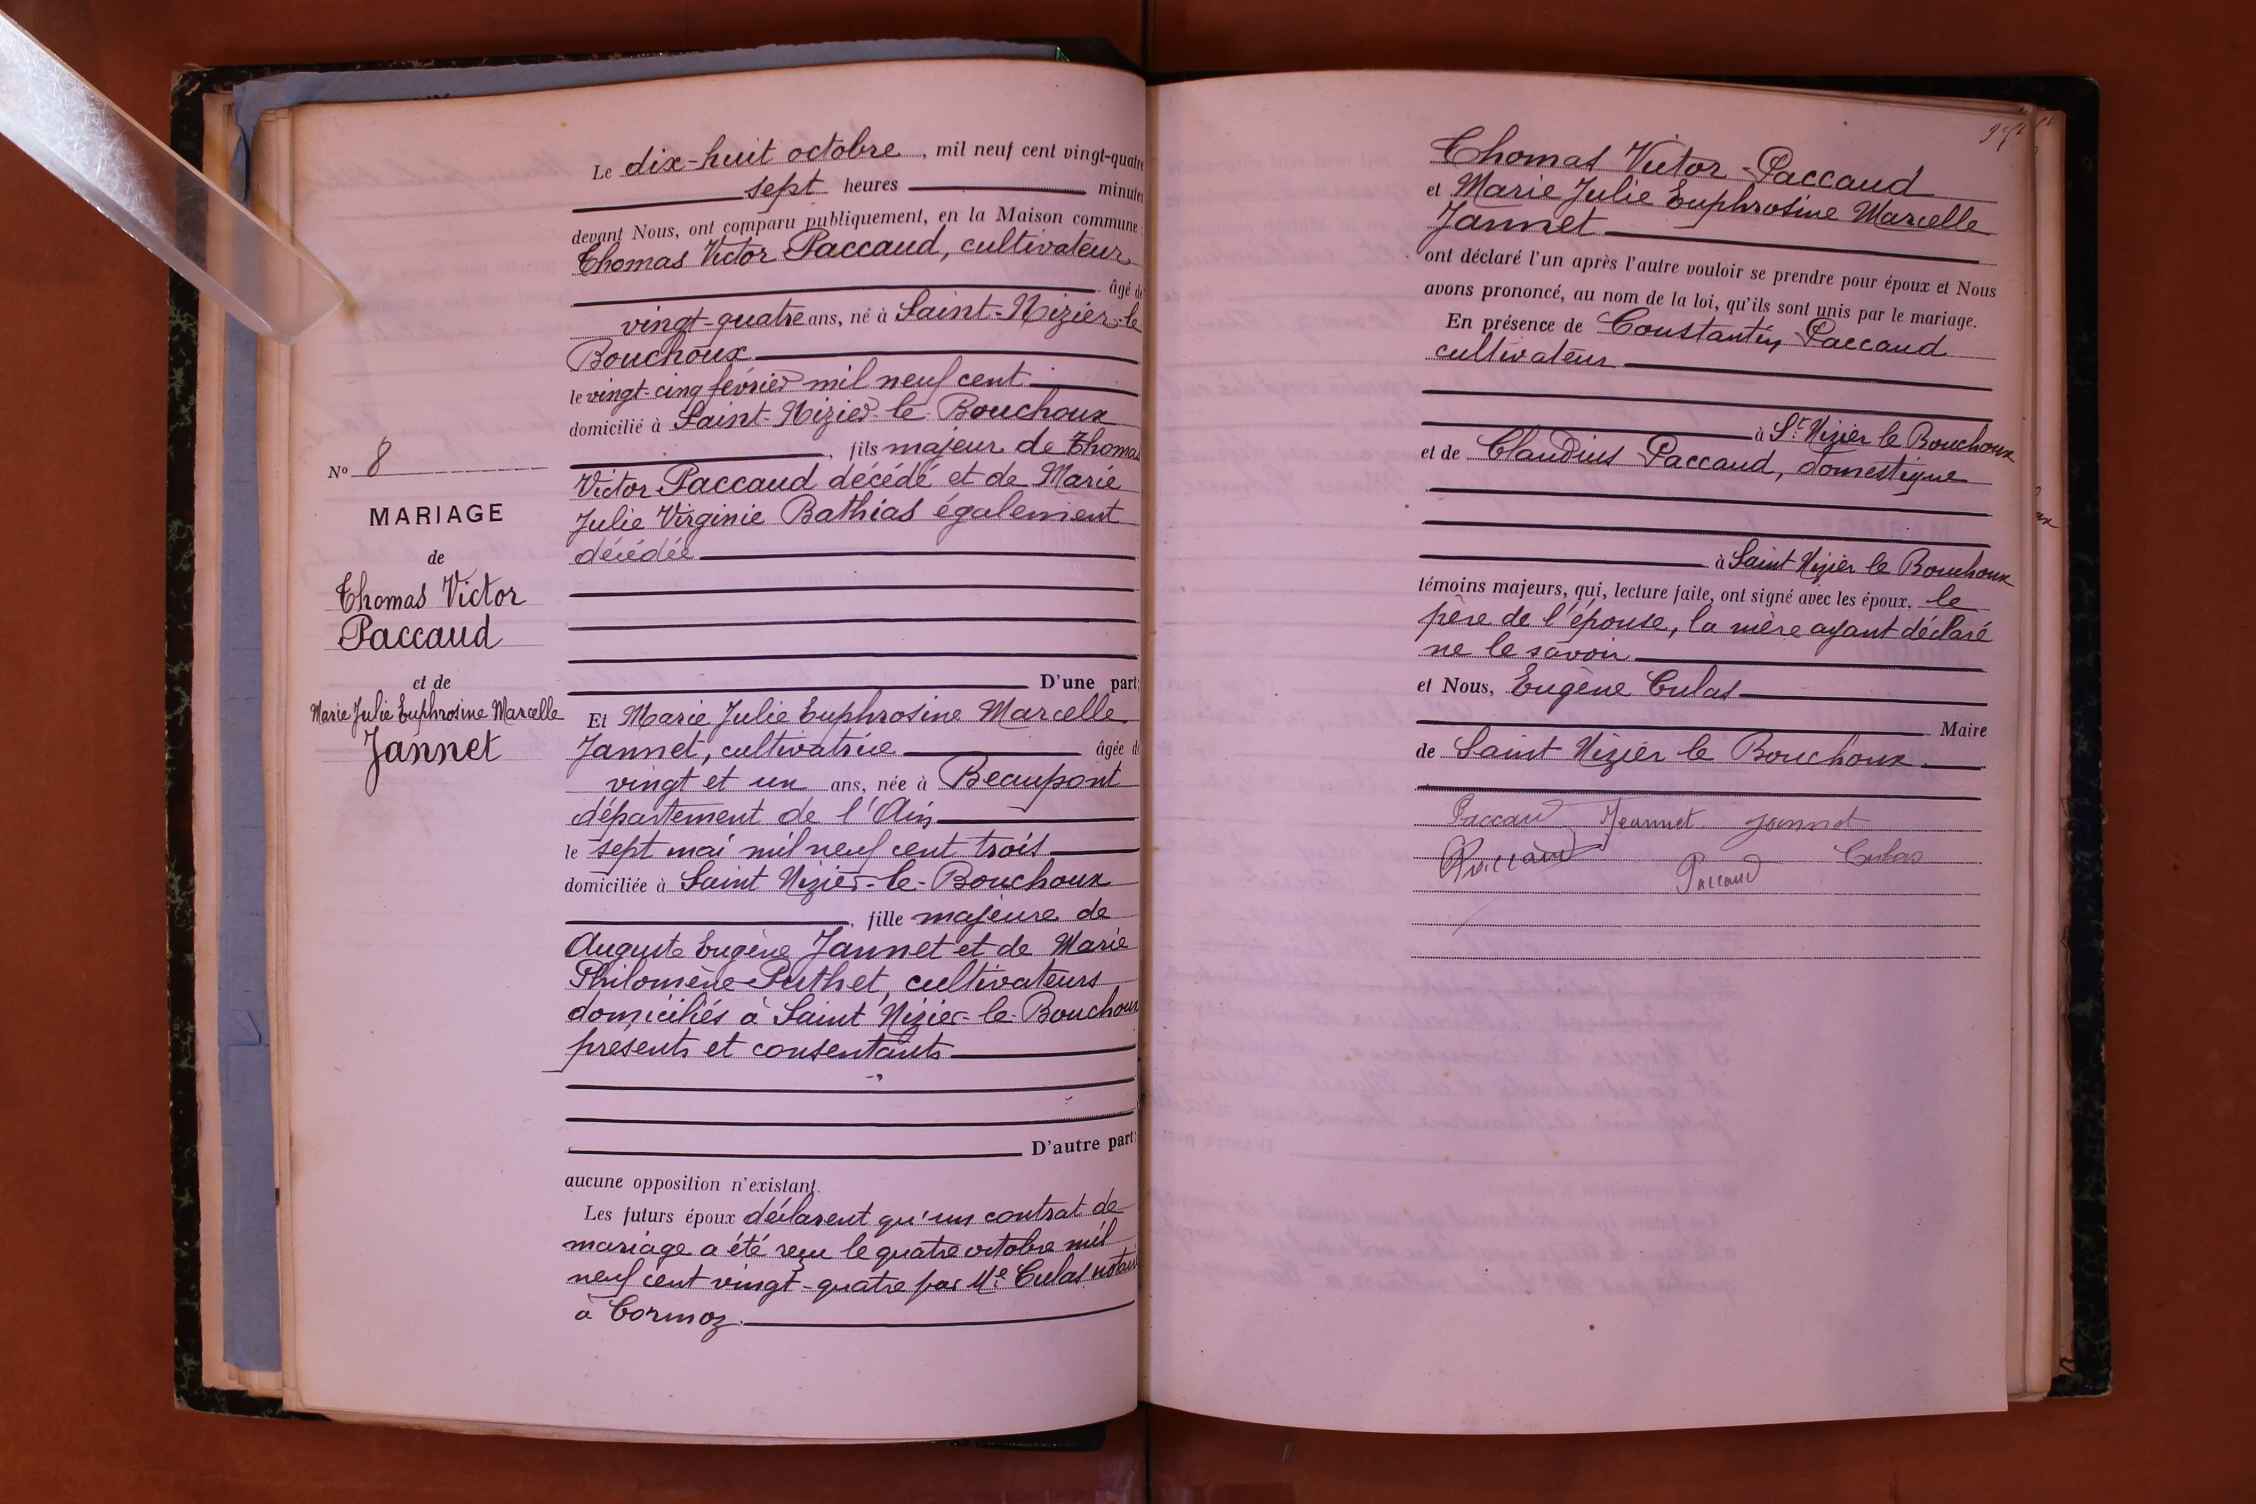 Le dix-huit octobre, mil neuf cent vingt-quatre
sept heures minutes
devant Nous, ont comparu publiquement, en la Maison commune
Thomas Victor Paccaud, cultivateur
âgé de
vingt-quatre ans, né à Saint-Nizier-le
Bouchoux
le vingt-cinq février mil neuf cent
domicilié à Saint-Nizier-le-Bouchoux
, fils majeur de Thomas
Victor Paccaud décédé et de Marie
Julie Virginie Bathias également
décédée
D'une part;
Et Marie Julie Euphrosine Marcelle
Jannet, cultivatrice âgée de
vingt et un ans, née à Beaupont
département de l'Ain
le sept mai mil neuf cent trois
domiciliée à Saint Nizier-le-Bouchoux
, fille majeure de
Auguste Eugène Jannet et de Marie
Philomène Puthet, cultivateurs
domiciliés à Saint Nizier-le-Bouchoux
présents et consentants
D'autre part;
aucune opposition n'existant.
Les futurs époux déclarent qu'un contrat de
mariage a été reçu le quatre octobre mil
neuf cent vingt-quatre par Me Culas notaire
à Cormoz.
N° 8
MARIAGE
de
Thomas Victor
Paccaud
et de
Marie Julie Euphrosine Marcelle
Jannet
Thomas Victor Paccaud
et Marie Julie Euphrosine Marcelle
Jannet
ont déclaré l'un après l'autre vouloir se prendre pour époux et Nous
avons prononcé, au nom de la loi, qu'ils sont unis par le mariage.
En présence de Constantin Paccaud
cultivateur
à St Nizier le Bouchoux
et de Claudius Paccaud, domestique
à Saint Nizier le Bouchoux
témoins majeurs, qui, lecture faite, ont signé avec les époux, le
père de l'épouse, la mère ayant déclaré
ne le savoir
et Nous, Eugène Culas
Maire
de Saint Nizier le Bouchoux
Paccaud Jeannet Jannet
Paccaud Culas
Paccaud